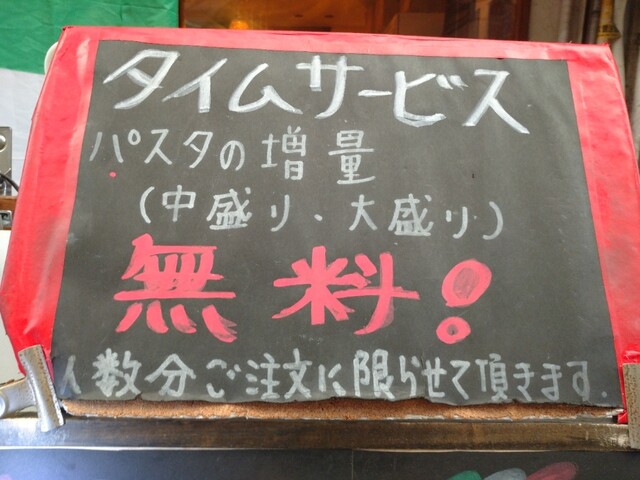 タイムサービス
パスタの増量
(中盛り、大盛り)
無料!
人数分ご注文に限らせて頂きます.